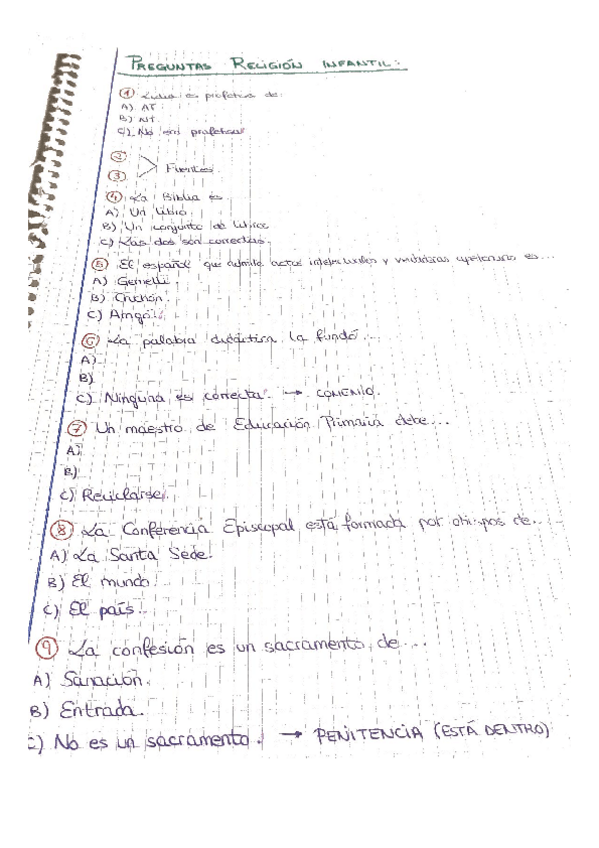 PREGUNTAS RELIGIÓN INFANTIL:
① es profetisa de:
A) AT.
B) NT.
C) No era profetisa
②
③ Fuentes.
④ La Biblia es
A) Un libro.
B) Un conjunto de libros
C) Las dos son correctas.
⑤ El español que admite actos intelectuales y es...
A) Gemelli.
B)
C)
⑥ La palabra didáctica la fundó...
A)
B)
C) Ninguna es correcta. → COMENIO.
⑦ Un maestro de Educación Primaria debe...
A)
B)
C) Reciclarse.
⑧ La Conferencia Episcopal está formada por obispos de...
A) La Santa Sede.
B) El mundo.
C) El país.
⑨ La confesión es un sacramento de...
A) Sanación.
B) Entrada.
C) No es un sacramento. → PENITENCIA (ESTÁ DENTRO)